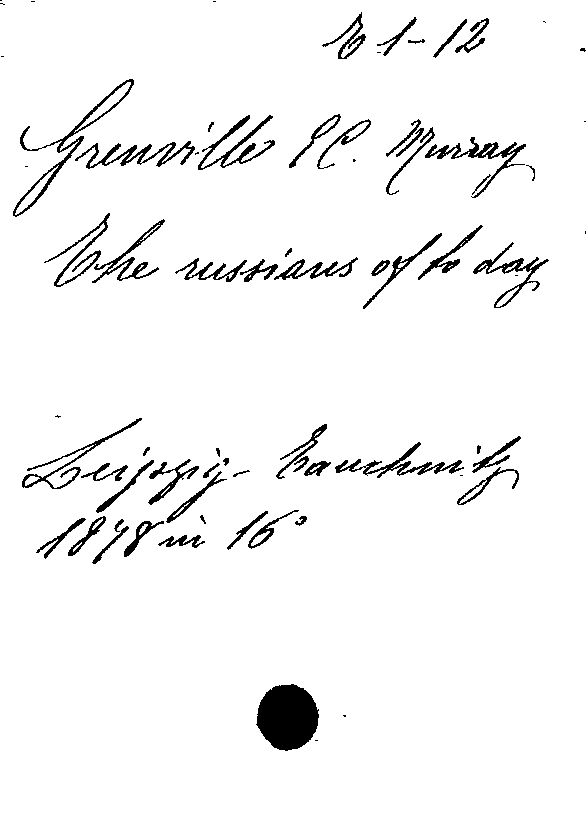 E 1-12
Grenville E C. Murray
The russians of to day
Leipzig - Tauchnitz
1878 in 16°